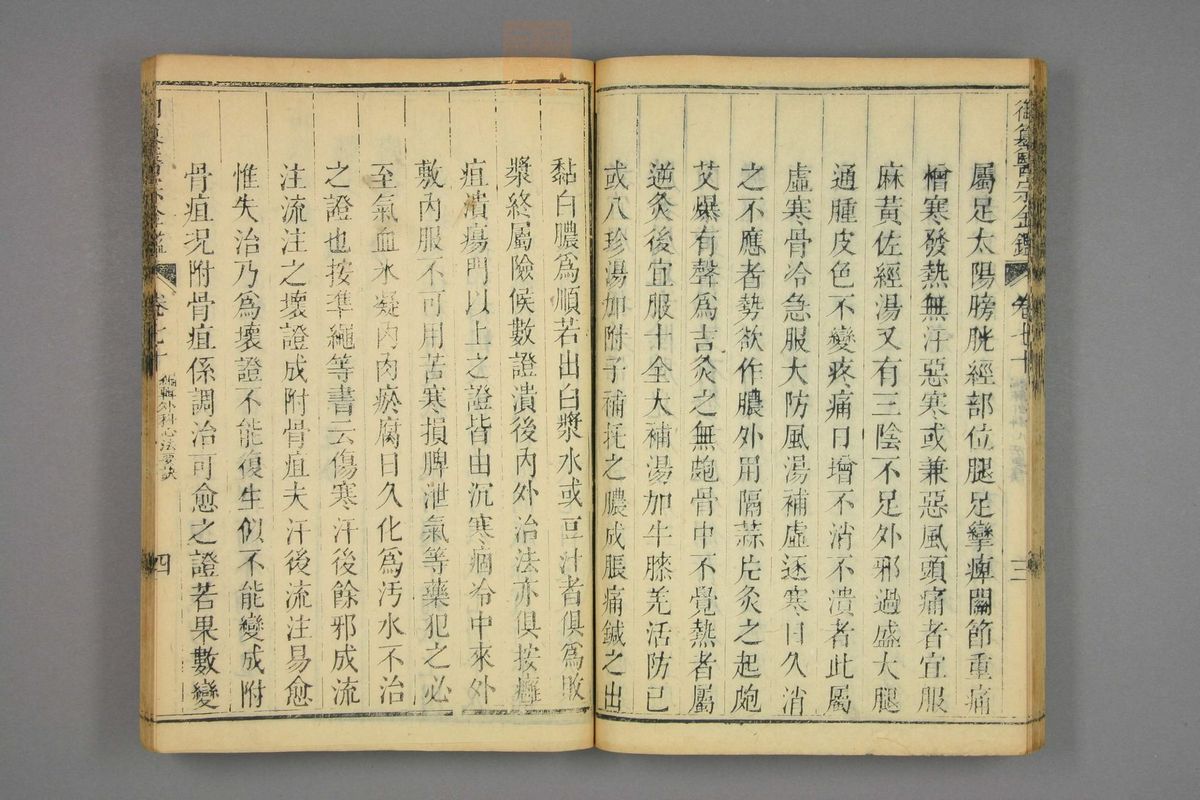 御纂醫宗金鑑
卷七十
三
屬足太陽膀胱經部位腿足攣痺關節重痛
憎寒發熱無汗惡寒或兼惡風頭痛者宜服
麻黃佐經湯又有三陰不足外邪過盛大腿
通腫皮色不變疼痛日增不消不潰者此屬
虛寒骨冷急服大防風湯補虛逐寒日久消
之不應者勢欲作膿外用隔蒜片灸之起皰
艾爆有聲爲吉灸之無皰骨中不覺熱者屬
逆灸後宜服十全大補湯加牛膝羌活防己
或八珍湯加附子補托之膿成脹痛鍼之出
黏白膿爲順若出白漿水或豆汁者俱爲敗
漿終屬險候數證潰後內外治法亦俱按癰
疽潰瘍門以上之證皆由沉寒痼冷中來外
敷內服不可用苦寒損脾泄氣等藥犯之必
至氣血冰凝內肉瘀腐日久化爲汚水不治
之證也按準繩等書云傷寒汗後餘邪成流
注流注之壞證成附骨疽夫汗後流注易愈
惟失治乃爲壞證不能復生似不能變成附
骨疽况附骨疽係調治可愈之證若果數變
醫宗金鑑
卷七十
編輯外科心法要訣
四